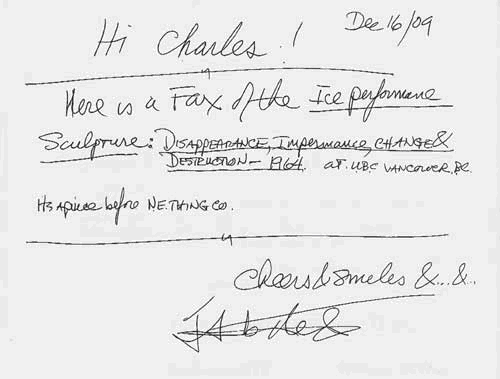 Dec 16/09
Hi Charles!
Here is a Fax of the Ice performane
Sculpture: DISAPPEARANCE, Impermance, CHANGE &
DESTRUCTION – 1964. at. UBC VANCOUVER, BC.
before N.E. THING CO.
Cheers & Smiles &...&..